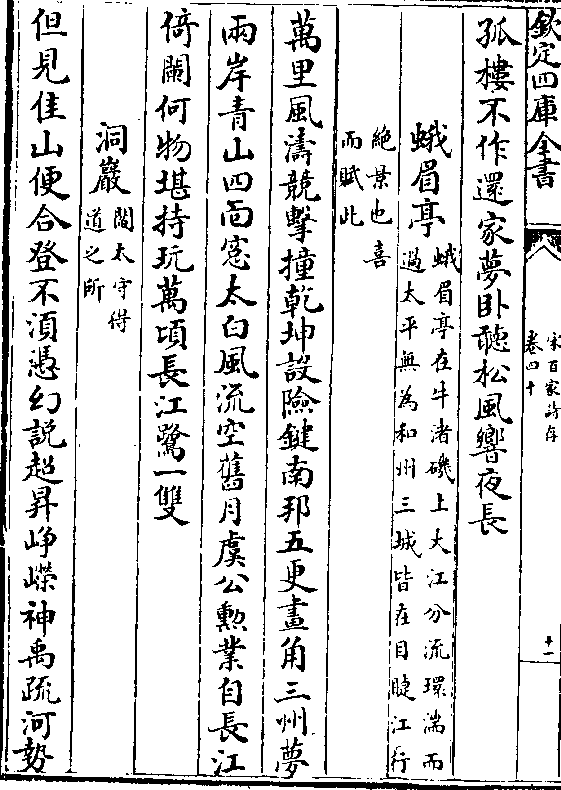 欽定四庫全書
宋百家詩存
卷四十
十一
孤樓不作還家夢臥聽松風響夜長
蛾眉亭
蛾眉亭在牛渚磯上大江分流環湍而
過太平無為和州三城皆在目睫江行
絶景也喜
而賦此
萬里風濤競擊撞乾坤設險鍵南邦五更畫角三州夢
兩岸青山四面窓太白風流空舊月虞公勲業自長江
倚闌何物堪持玩萬頃長江鷺一雙
洞巖
閻太守得
道之所
但見佳山便合登不湏憑幻説超昇崢嶸神禹疏河勢